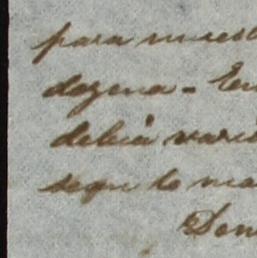 para nuest
dozena - En
debia vari
segu lo ma
Don